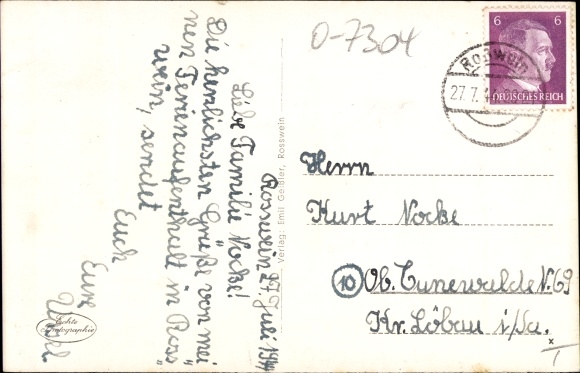 0-7304
6 6
DEUTSCHES REICH
Roßwein
27.7.4
Rosswein 27. Juli 1944
Liebe Familie Nocke!
Die herzlichsten Grüße von mei
nen Ferienaufenthalt in Ross
wein, sendet
Euch
Eure
Echte
Photographie
Verlag: Emil Geißler, Rosswein
Herrn
Kurt Nocke
10 Ob. Cunewalde N. 69
Kr. Löbau i/Sa.